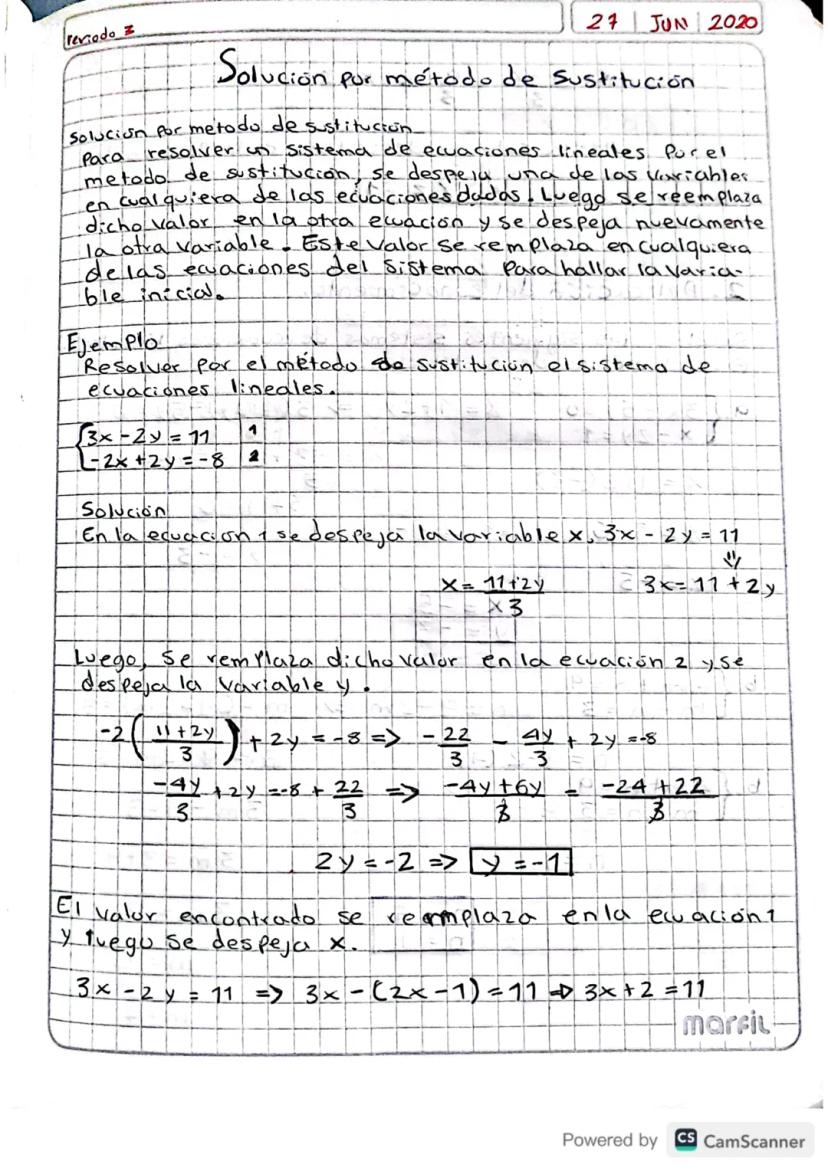 periodo 3
27 JUN 2020
Solución por método de sustitución
Solución por metodo de sustitución
Para resolver un sistema de ecuaciones lineales por el
metodo de sustitución, se despeja una de las variables
en cualquiera de las ecuaciones dadas. Luego se reemplaza
dicho valor en la otra ecuación y se despeja nuevamente
la otra variable. Este valor se remplaza en cualquiera
de las ecuaciones del sistema para hallar la varia-
ble inicial.
Ejemplo
Resolver por el método de sustitución el sistema de
ecuaciones lineales.
{3x - 2y = 11 1
-2x + 2y = -8 2
Solución
En la ecuacion 1 se despeja la variable x. 3x - 2y = 11
⇓
x = (11+2y)/3 3x = 11 + 2y
Luego, se remplaza dicho valor en la ecuación 2 y se
despeja la variable y.
-2((11+2y)/3) + 2y = -8 => -22/3 - 4y/3 + 2y = -8
-4y/3 + 2y = -8 + 22/3 => (-4y+6y)/3 = (-24+22)/3
2y = -2 => y = -1
El valor encontrado se reemplaza en la ecuación 1
y luego se despeja x.
3x - 2y = 11 => 3x - (2x - 1) = 11 => 3x + 2 = 11
marfil
Powered by CS CamScanner